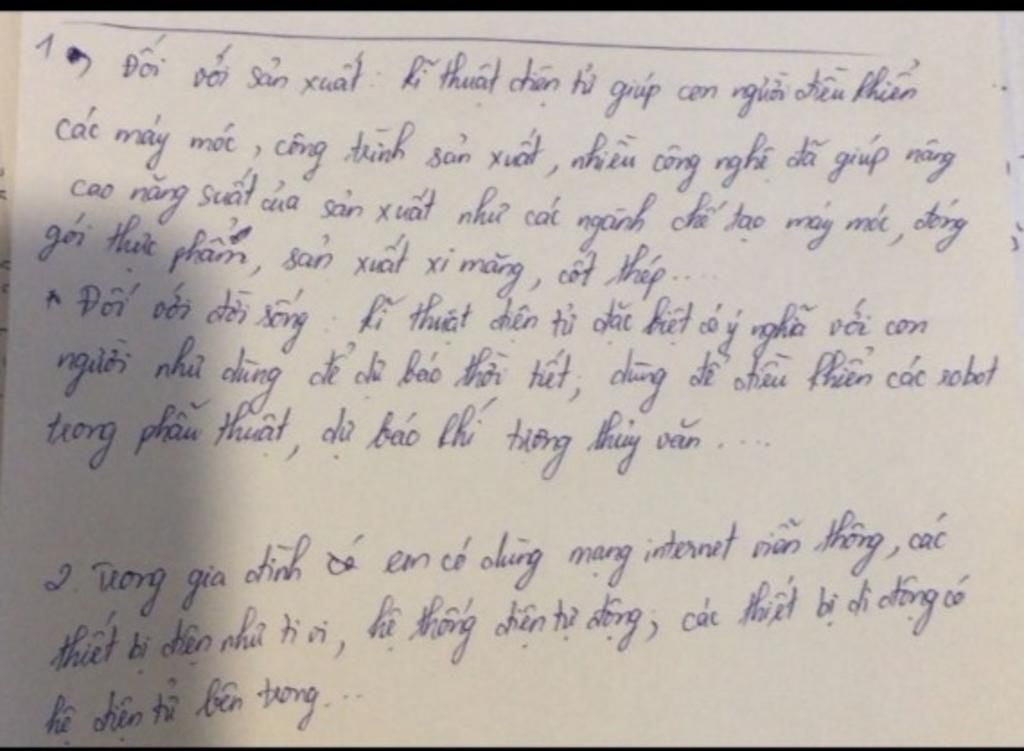 1 Đối với sản xuất: kĩ thuật điện tử giúp con người điều khiển
các máy móc, công trình sản xuất, nhiều công nghệ đã giúp nâng
cao năng suất của sản xuất như các ngành chế tạo máy móc, đóng
gói thực phẩm, sản xuất xi măng, cốt thép....
* Đối với đời sống: kĩ thuật điện tử đặc biệt có ý nghĩa với con
người như dùng để dự báo thời tiết; dùng để điều khiển các robot
trong phẫu thuật, dự báo khí tượng thủy văn....
2. Trong gia đình em có dùng mạng internet viễn thông, các
thiết bị điện như ti vi, hệ thống điện tự động; các thiết bị di động có
hệ điện tử bên trong...